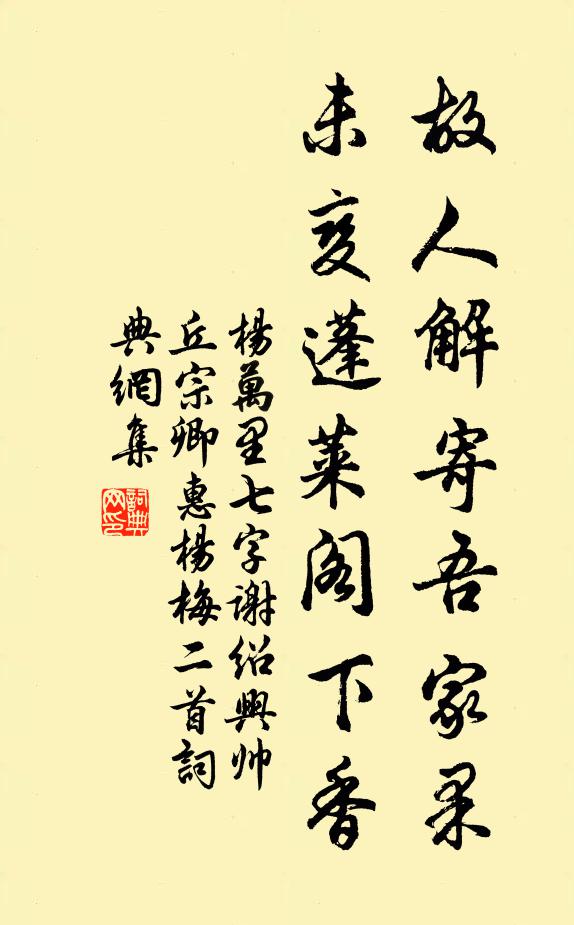 故人解寄吾家果
未变蓬莱阁下香
楊萬里七字謝紹興帅
丘宗卿惠楊梅二首詞
典網集
詞典
网印